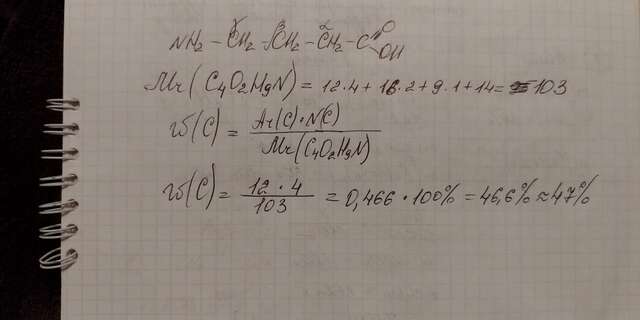 γ β α
NH₂ – CH₂ – CH₂ – CH₂ – C O OH
Mr(C₄O₂H₉N) = 12·4 + 16·2 + 9·1 + 14 = 103
w(C) = Ar(C)·N(C) / Mr(C₄O₂H₉N)
w(C) = 12·4 / 103 = 0,466·100% = 46,6% ≈ 47%